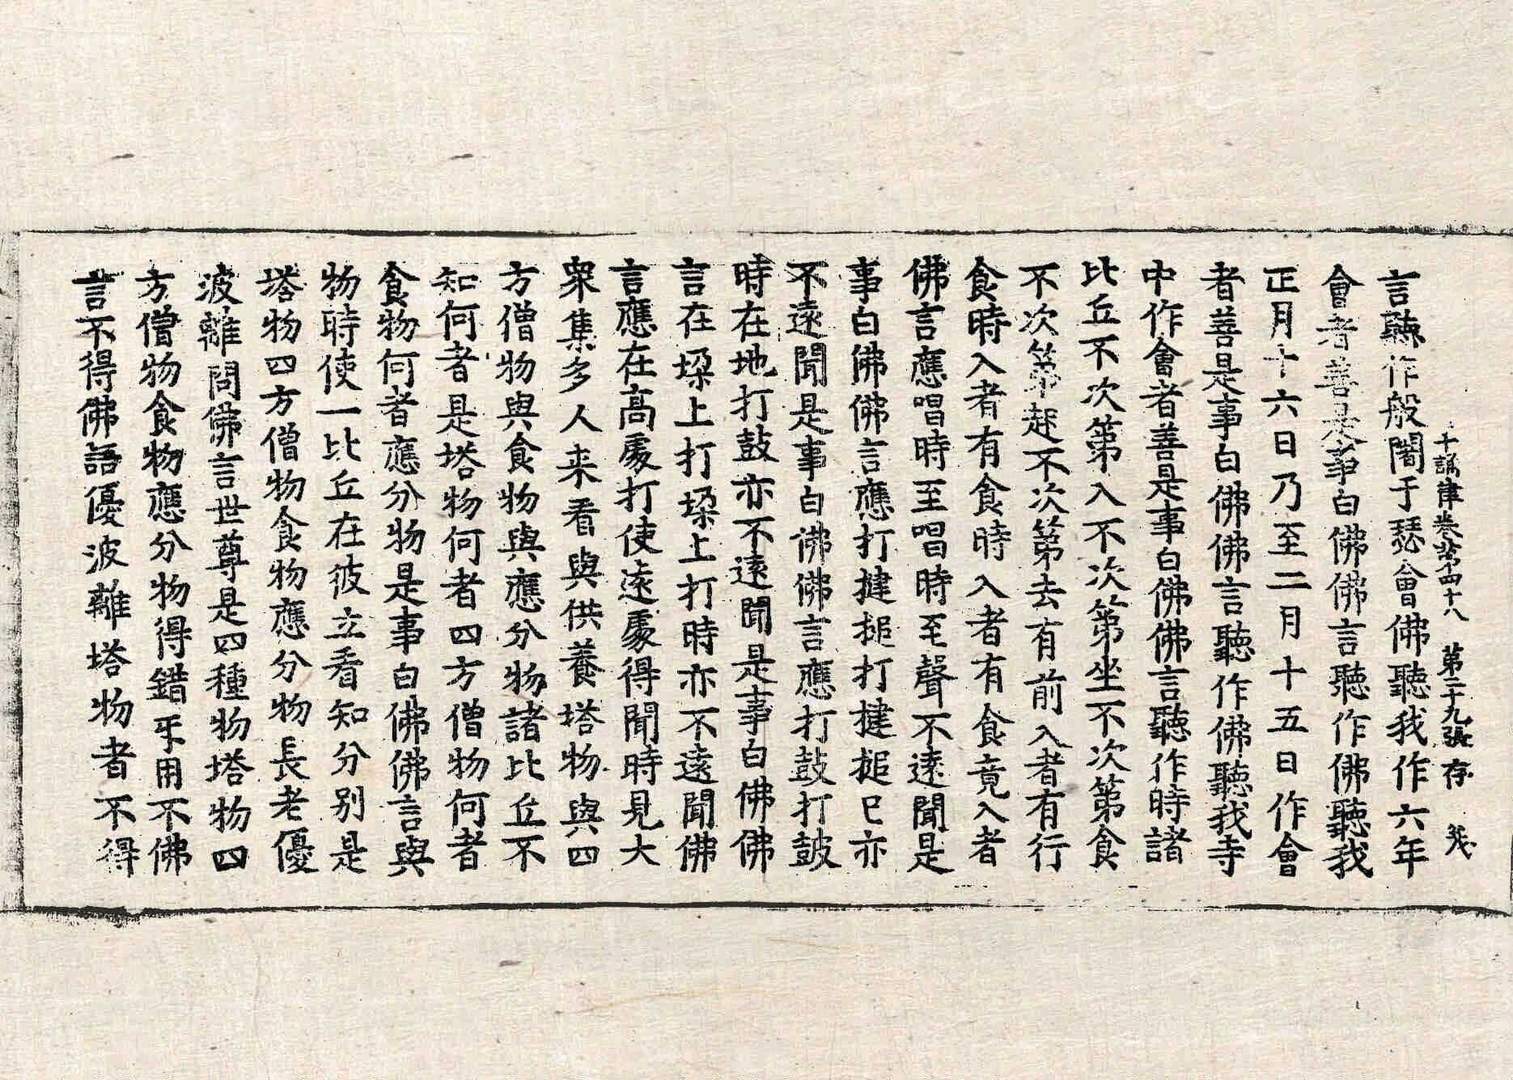 十誦律卷第四十八 第二十九張 存
言聽作般闍于瑟會佛聽我作六年
會者善是事白佛佛言聽作佛聽我
正月十六日乃至二月十五日作會
者善是事白佛佛言聽作佛聽我寺
中作會者善是事白佛佛言聽作時諸
比丘不次第入不次第坐不次第食
不次第起不次第去有前入者有行
食時入者有食時入者有食竟入者
佛言應唱時至唱時至聲不遠聞是
事白佛佛言應打揵搥打揵搥已亦
不遠聞是事白佛佛言應打鼓打鼓
時在地打鼓亦不遠聞是事白佛佛
言在垛上打垛上打時亦不遠聞佛
言應在高處打使遠處得聞時見大
衆集多人来看與供養塔物與四
方僧物與食物與應分物諸比丘不
知何者是塔物何者四方僧物何者
食物何者應分物是事白佛佛言與
物時使一比丘在彼立看知分別是
塔物四方僧物食物應分物長老優
波離問佛言世尊是四種物塔物四
方僧物食物應分物得錯㸦用不佛
言不得佛語優波離塔物者不得